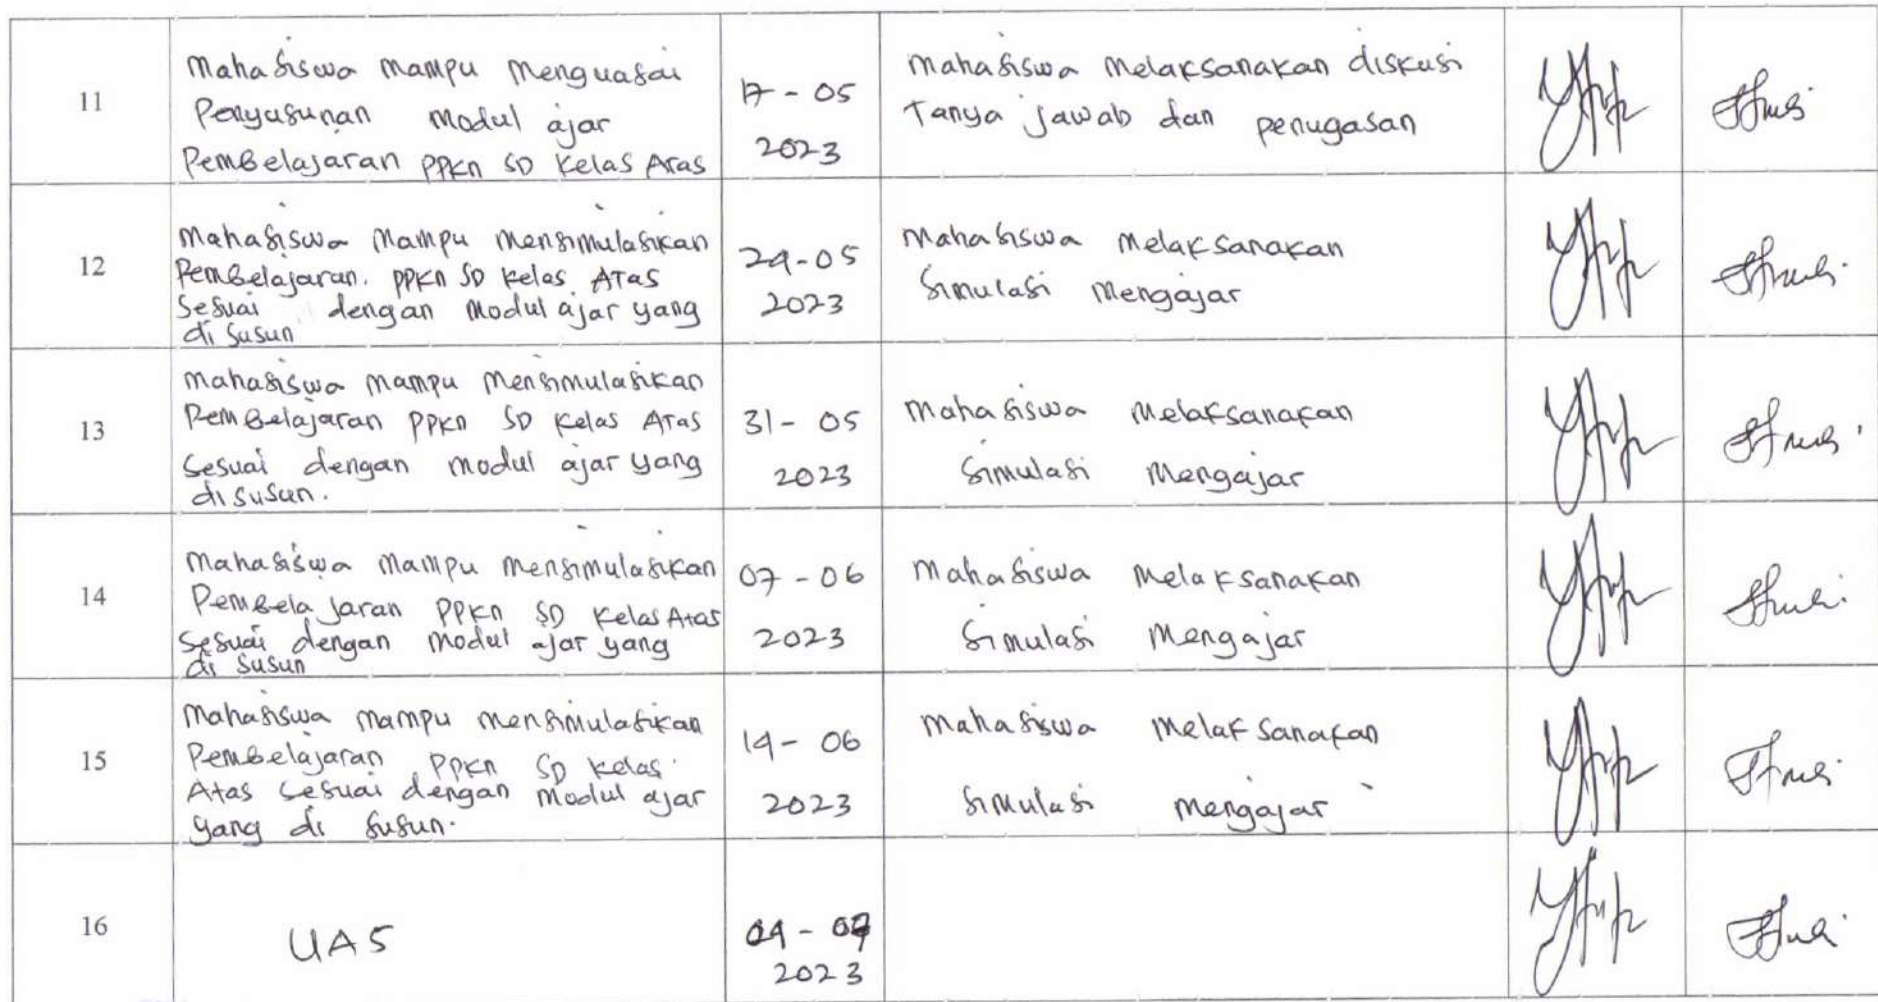 11
Mahasiswa mampu menguasai
Penyusunan modul ajar
Pembelajaran PPKn SD Kelas Atas
17-05
2023
Mahasiswa melaksanakan diskusi
Tanya jawab dan penugasan
12
Mahasiswa mampu mensimulasikan
Pembelajaran. PPKn SD Kelas Atas
Sesuai dengan modul ajar yang
di susun
24-05
2023
Mahasiswa melaksanakan
Simulasi mengajar
13
Mahasiswa mampu mensimulasikan
Pembelajaran PPKn SD Kelas Atas
Sesuai dengan modul ajar yang
disusun.
31-05
2023
Mahasiswa melaksanakan
Simulasi mengajar
14
Mahasiswa mampu mensimulasikan
Pembelajaran PPKn SD Kelas Atas
Sesuai dengan modul ajar yang
di susun
07-06
2023
Mahasiswa melaksanakan
Simulasi mengajar
15
Mahasiswa mampu mensimulasikan
Pembelajaran PPKn SD Kelas
Atas sesuai dengan modul ajar
yang di susun.
14-06
2023
Mahasiswa melaksanakan
Simulasi mengajar
16
UAS
2023